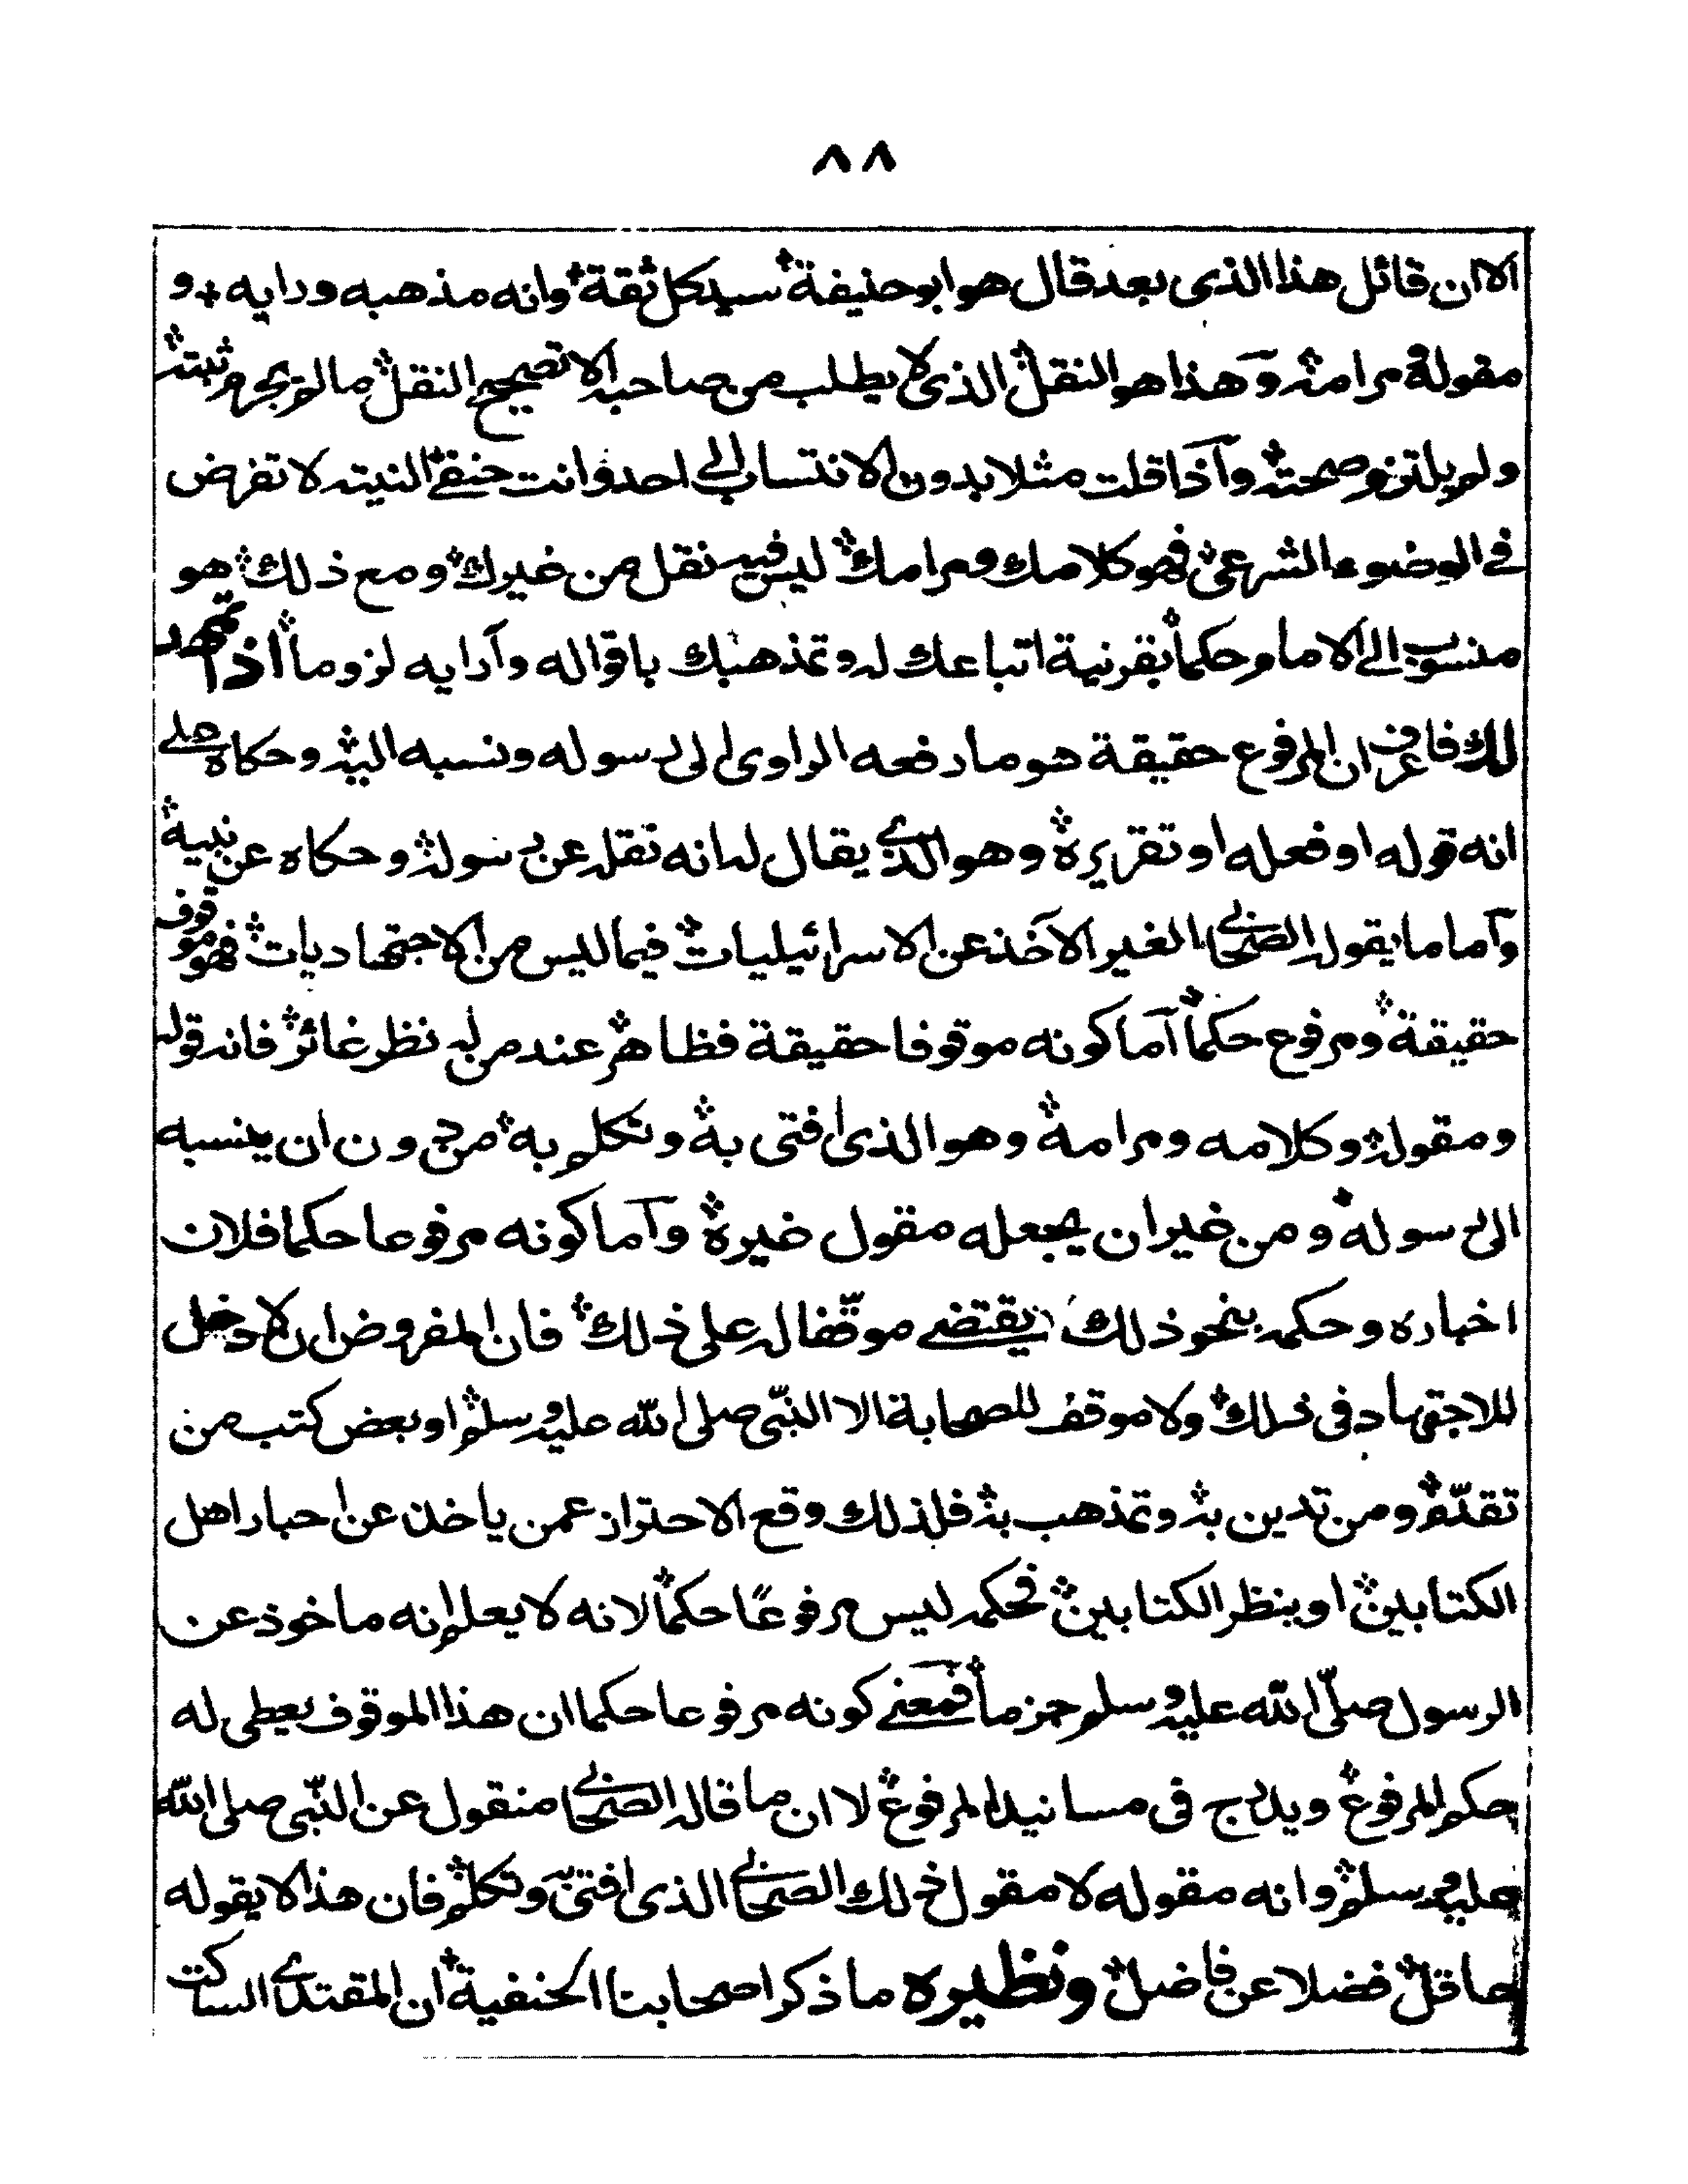 ٨٨
الا ان قائل هذا الذى بعد قال هو ابو حنيفة سيد كل ثقة وانه مذهبه ورايه و
مقولة مرامه وهذا هو النقل الذى لا يطلب من صاحبه الا تصحيح النقل ما لم يجزم ثبته
ولم يلتزم صحته وآذا قلت مثلا بدون الانتساب الى احد وانت حنفى النيته لا تفرض
فى الوضوء الشرعى فهو كلامك ومرامك ليس فيه نقل من غيرك ومع ذلك هو
منسوب الى الامام حكما بقرنية اتباعك له وتمذهبك باقواله وآرايه لزوما اذا تمهد
لك فاعرف ان المرفوع حقيقة هو ما رفعه الراوى الى رسوله ونسبه اليه وحكاه على
انه قوله او فعله او تقريره وهو الذى يقال له انه نقله عن رسوله وحكاه عن نبيه
وآما ما يقوله الصحابى الغير الآخذ عن الاسرائيليات فيما ليس من الاجتهاديات فهو موقوف
حقيقة ومرفوع حكما آما كونه موقوفا حقيقة فظاهر عند من له نظر غائر فانه قوله
ومقوله وكلامه ومرامه وهو الذى افتى به وتكلم به من دون ان ينسبه
الى رسوله ومن غير ان يجعله مقول غيره وآما كونه مرفوعا حكما فلان
اخباره وحكمه بنحو ذلك يقتضى موقفا له على ذلك فان المفروض ان لا دخل
للاجتهاد فى ذلك ولا موقف للصحابة الا النبى صلى الله عليه وسلم او بعض كتب من
تقدم ومن تدين به وتمذهب به فلذلك وقع الاحتراز عمن ياخذ عن احبار اهل
الكتابين او ينظر الكتابين فحكمه ليس مرفوعا حكما لانه لا يعلم انه ماخوذ عن
الرسول صلى الله عليه وسلم جزما فمعنى كونه مرفوعا حكما ان هذا الموقوف يعطى له
حكم المرفوع ويدرج فى مسانيد المرفوع لا ان ما قاله الصحابى منقول عن النبى صلى الله
عليه وسلم وانه مقوله لا مقول ذلك الصحابى الذى افتى وتكلم فان هذا لا يقوله
عاقل فضلا عن فاضل ونظيره ما ذكر اصحابنا الحنفية ان المقتدى الساكت